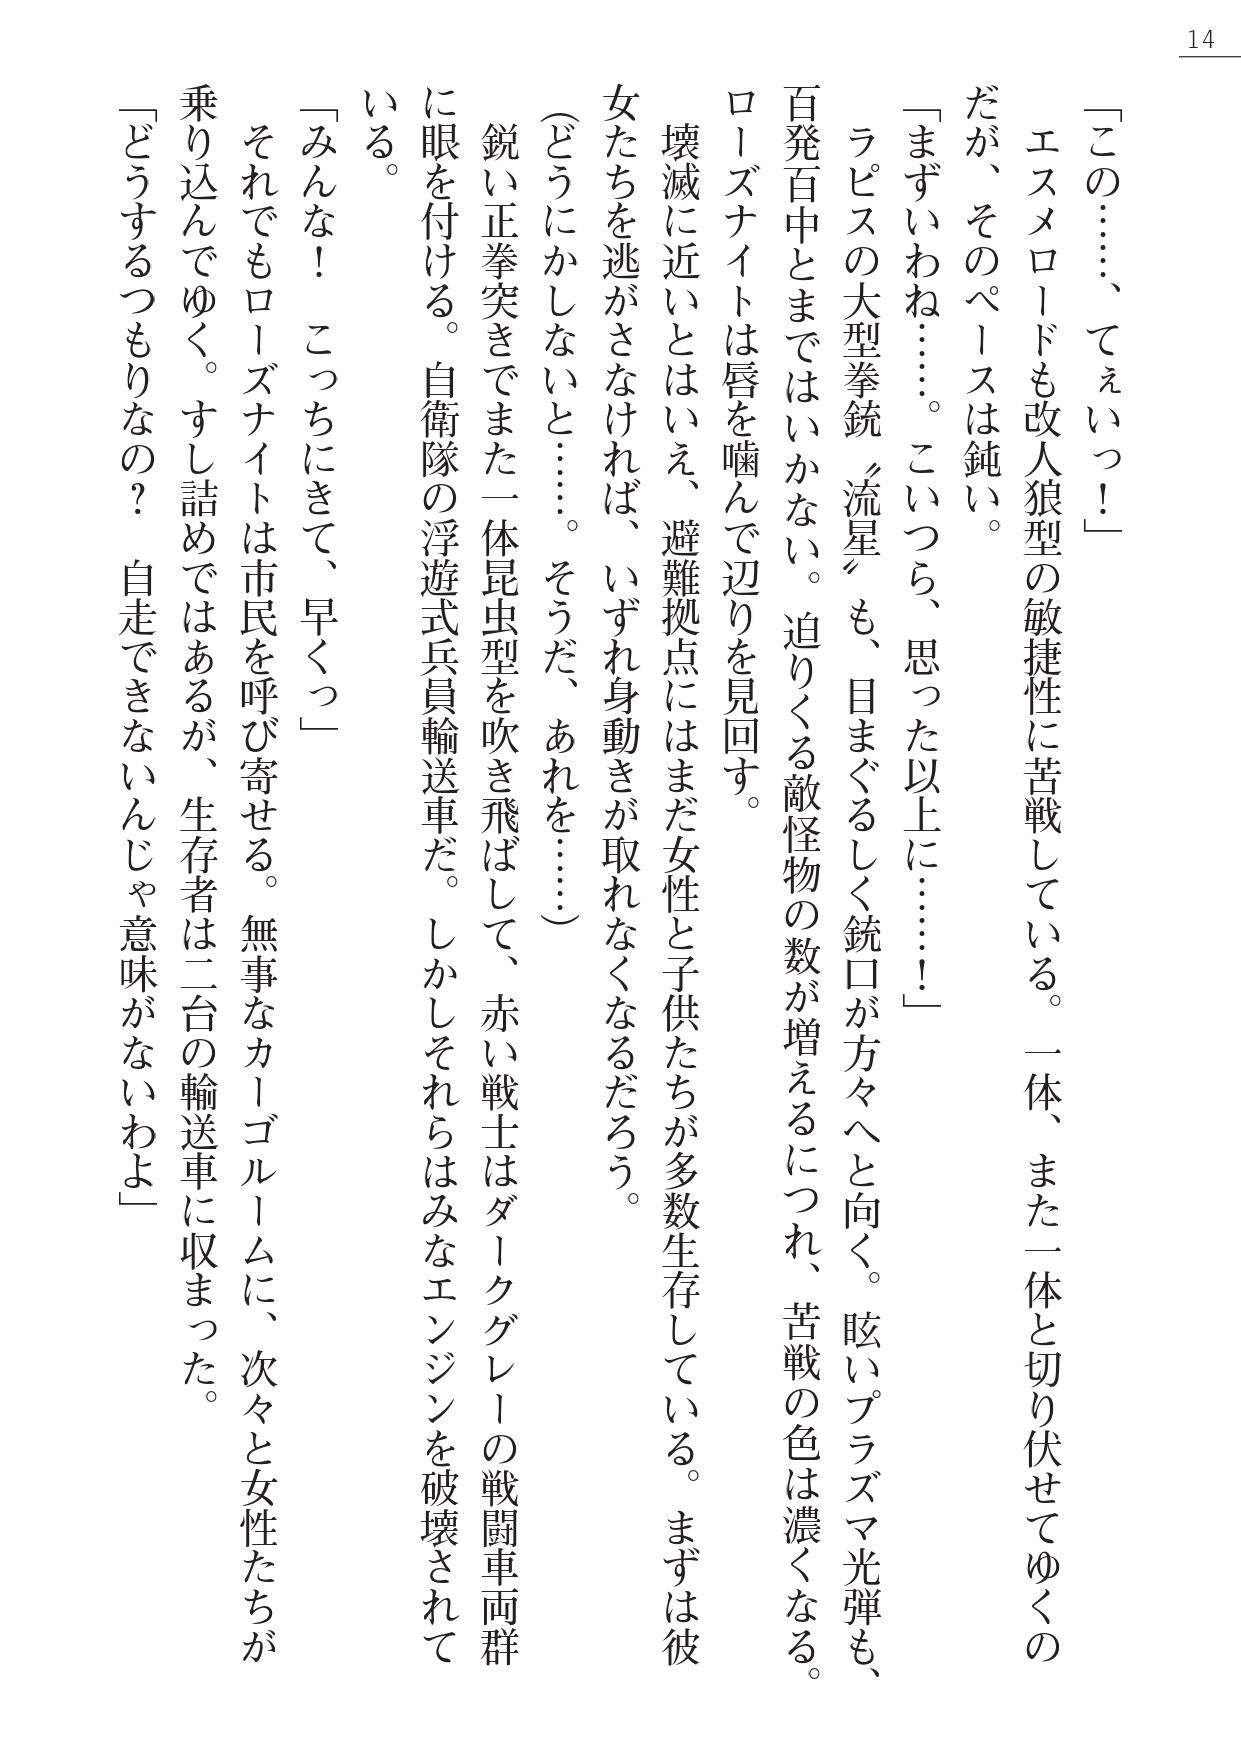 14
「この……、てぇいっ！」
　エスメロードも改人狼型の敏捷性に苦戦している。一体、また一体と切り伏せてゆくの
だが、そのペースは鈍い。
「まずいわね……。こいつら、思った以上に……！」
　ラピスの大型拳銃〝流星〟も、目まぐるしく銃口が方々へと向く。眩いプラズマ光弾も、
百発百中とまではいかない。迫りくる敵怪物の数が増えるにつれ、苦戦の色は濃くなる。
ローズナイトは唇を噛んで辺りを見回す。
　壊滅に近いとはいえ、避難拠点にはまだ女性と子供たちが多数生存している。まずは彼
女たちを逃がさなければ、いずれ身動きが取れなくなるだろう。
（どうにかしないと……。そうだ、あれを……）
　鋭い正拳突きでまた一体昆虫型を吹き飛ばして、赤い戦士はダークグレーの戦闘車両群
に眼を付ける。自衛隊の浮遊式兵員輸送車だ。しかしそれらはみなエンジンを破壊されて
いる。
「みんな！　こっちにきて、早くっ」
　それでもローズナイトは市民を呼び寄せる。無事なカーゴルームに、次々と女性たちが
乗り込んでゆく。すし詰めではあるが、生存者は二台の輸送車に収まった。
「どうするつもりなの？　自走できないんじゃ意味がないわよ」